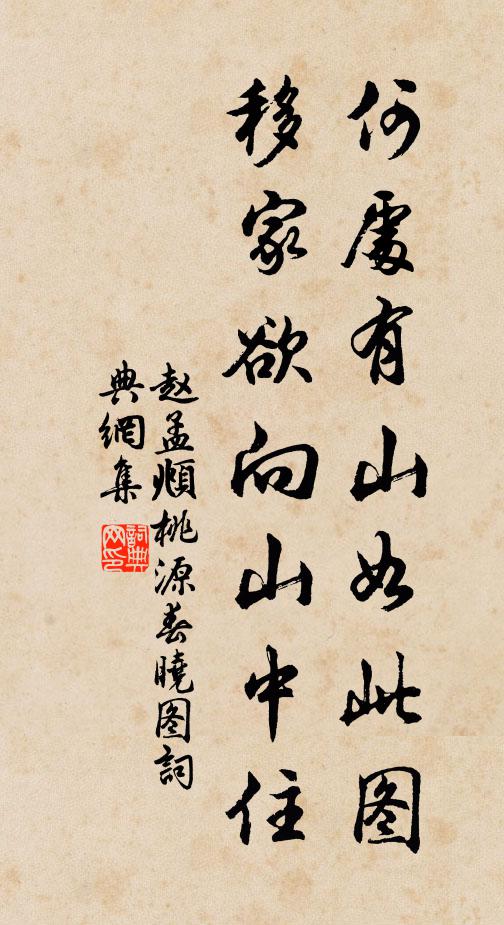 何處有山如此图
移家欲向山中住
赵孟頫桃源春曉图詞
典網集
詞典网印